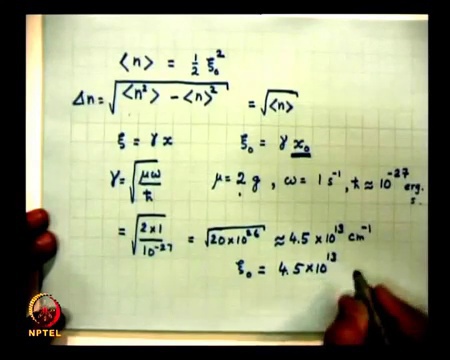 ⟨n⟩ = 1/2 ξ₀²
Δn = √(⟨n²⟩ - ⟨n⟩²) = √⟨n⟩
ξ = γ x ξ₀ = γ x₀
γ = √(μω/ħ) μ = 2 g, ω = 1 s⁻¹, ħ ≈ 10⁻²⁷ erg. s.
= √(2×1/10⁻²⁷) = √(20×10²⁶) ≈ 4.5×10¹³ cm⁻¹
ξ₀ = 4.5×10¹³
NPTEL